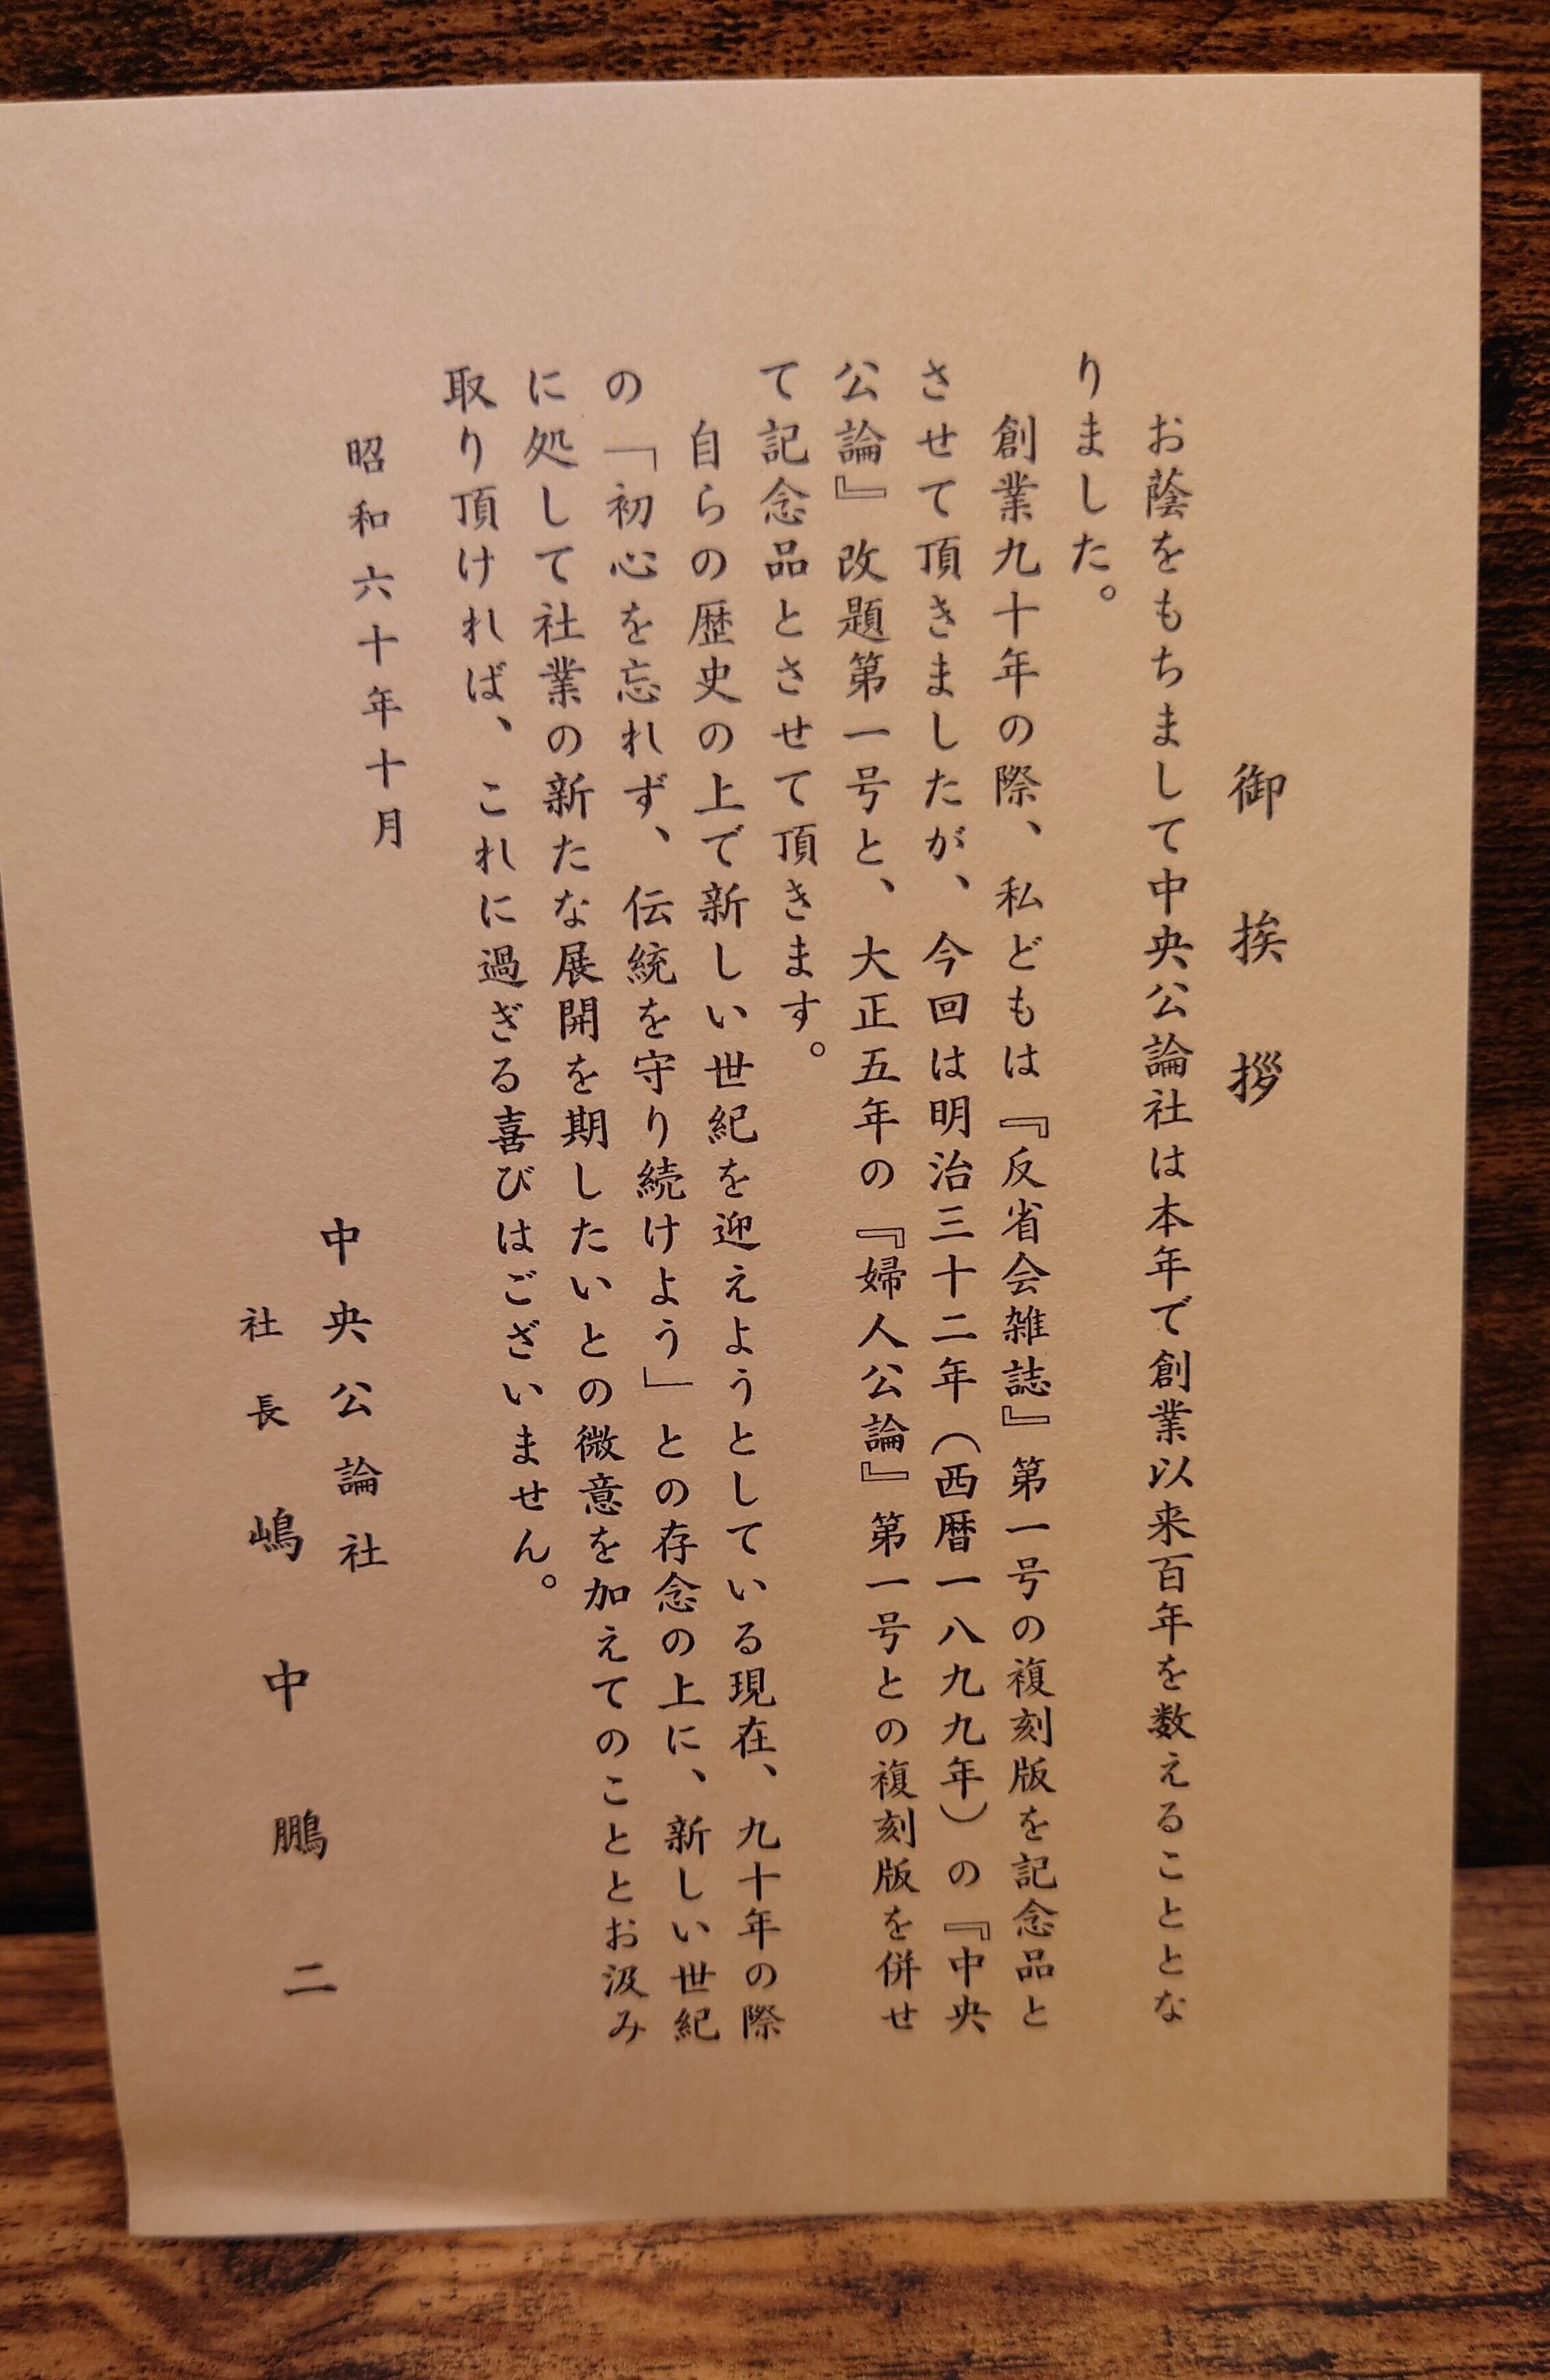 御挨拶
お蔭をもちまして中央公論社は本年で創業以来百年を数えることとな
りました。
創業九十年の際、私どもは『反省会雑誌』第一号の複刻版を記念品と
させて頂きましたが、今回は明治三十二年（西暦一八九九年）の『中央
公論』改題第一号と、大正五年の『婦人公論』第一号との複刻版を併せ
て記念品とさせて頂きます。
自らの歴史の上で新しい世紀を迎えようとしている現在、九十年の際
の「初心を忘れず、伝統を守り続けよう」との存念の上に、新しい世紀
に処して社業の新たな展開を期したいとの微意を加えてのこととお汲み
取り頂ければ、これに過ぎる喜びはございません。
昭和六十年十月
中央公論社
社長 嶋中鵬二